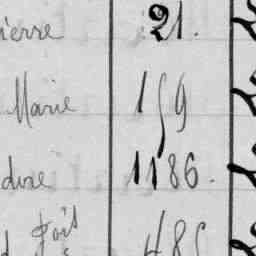 ierre 21.
Marie 159
dore 1186.
Fois 485